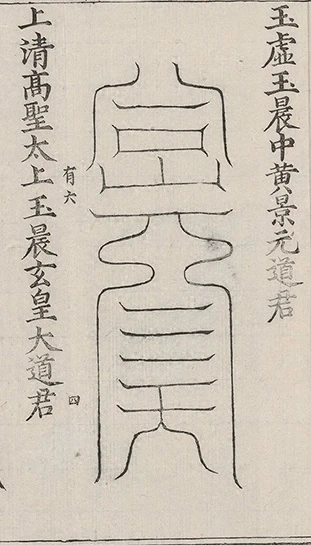 玉虛玉晨中黃景元道君
上清高聖太上玉晨玄皇大道君
有六
四